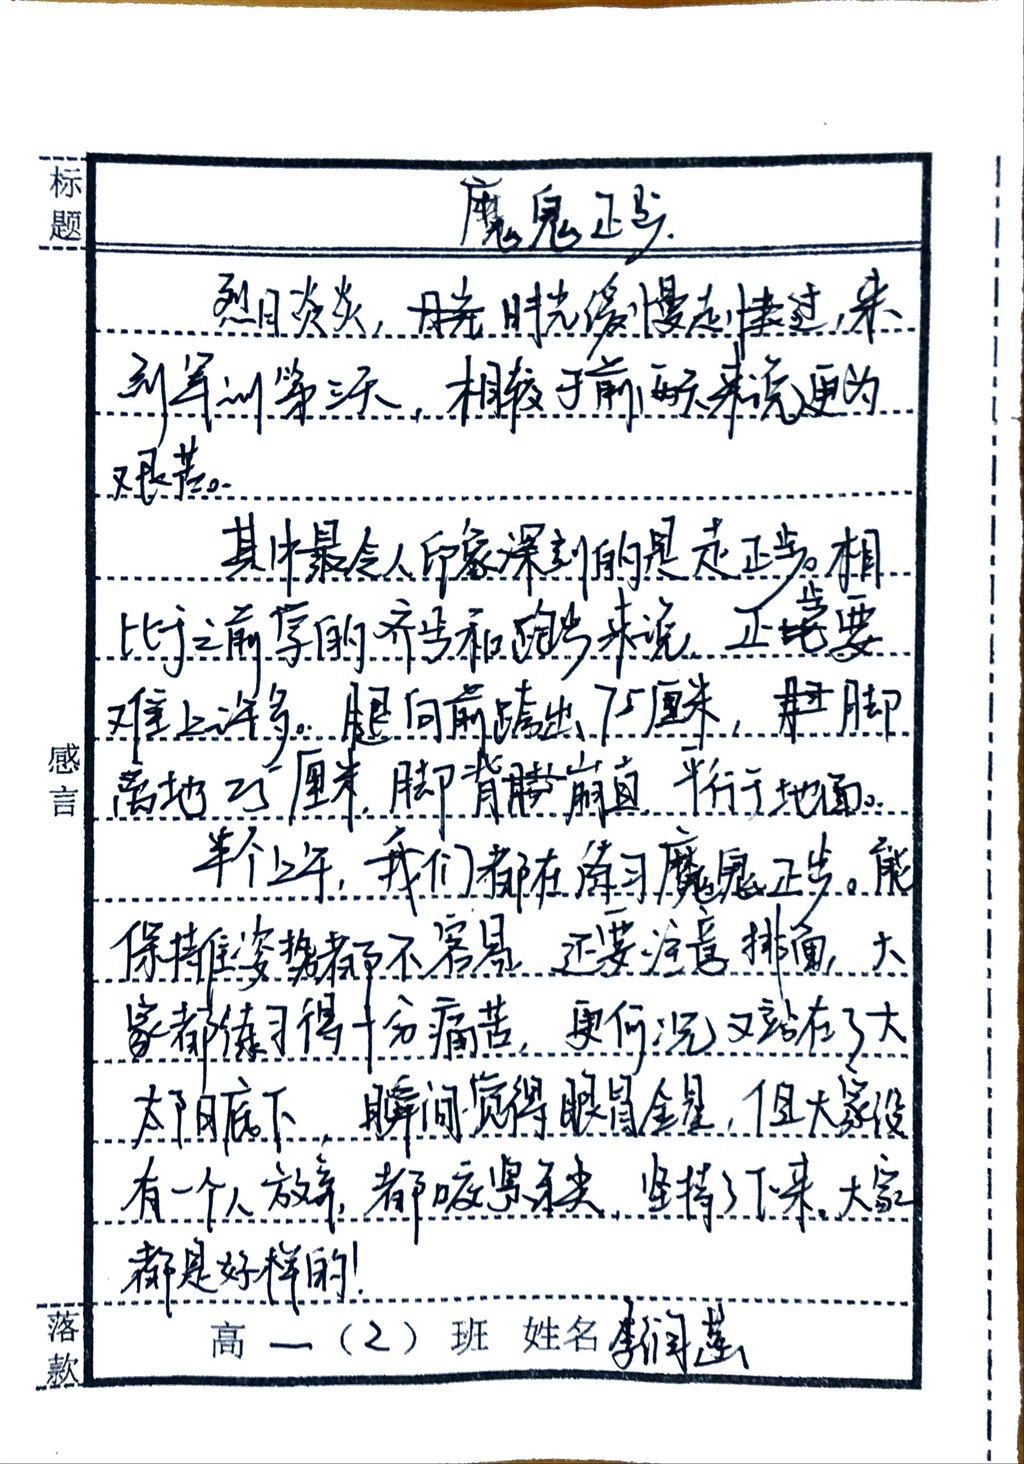 标题
魔鬼正步.
烈日炎炎，时光缓慢走过，来
到军训第三天，相较于前两天来说更为
艰苦。
其中最令人印象深刻的是走正步。相
比于之前学的齐步和跑步来说，正步要
难上许多。腿向前踢出，75厘米，脚
离地25厘米，脚背绷直，平行于地面。
感言
半个上午，我们都在练习魔鬼正步。能
保持住姿势都不容易，还要注意排面，大
家都练习得十分痛苦，更何况又站在了大
太阳底下，瞬间觉得眼冒金星，但大家没
有一个人放弃，都咬紧牙关，坚持了下来。大家
都是好样的！
落款
高一（2）班 姓名李润